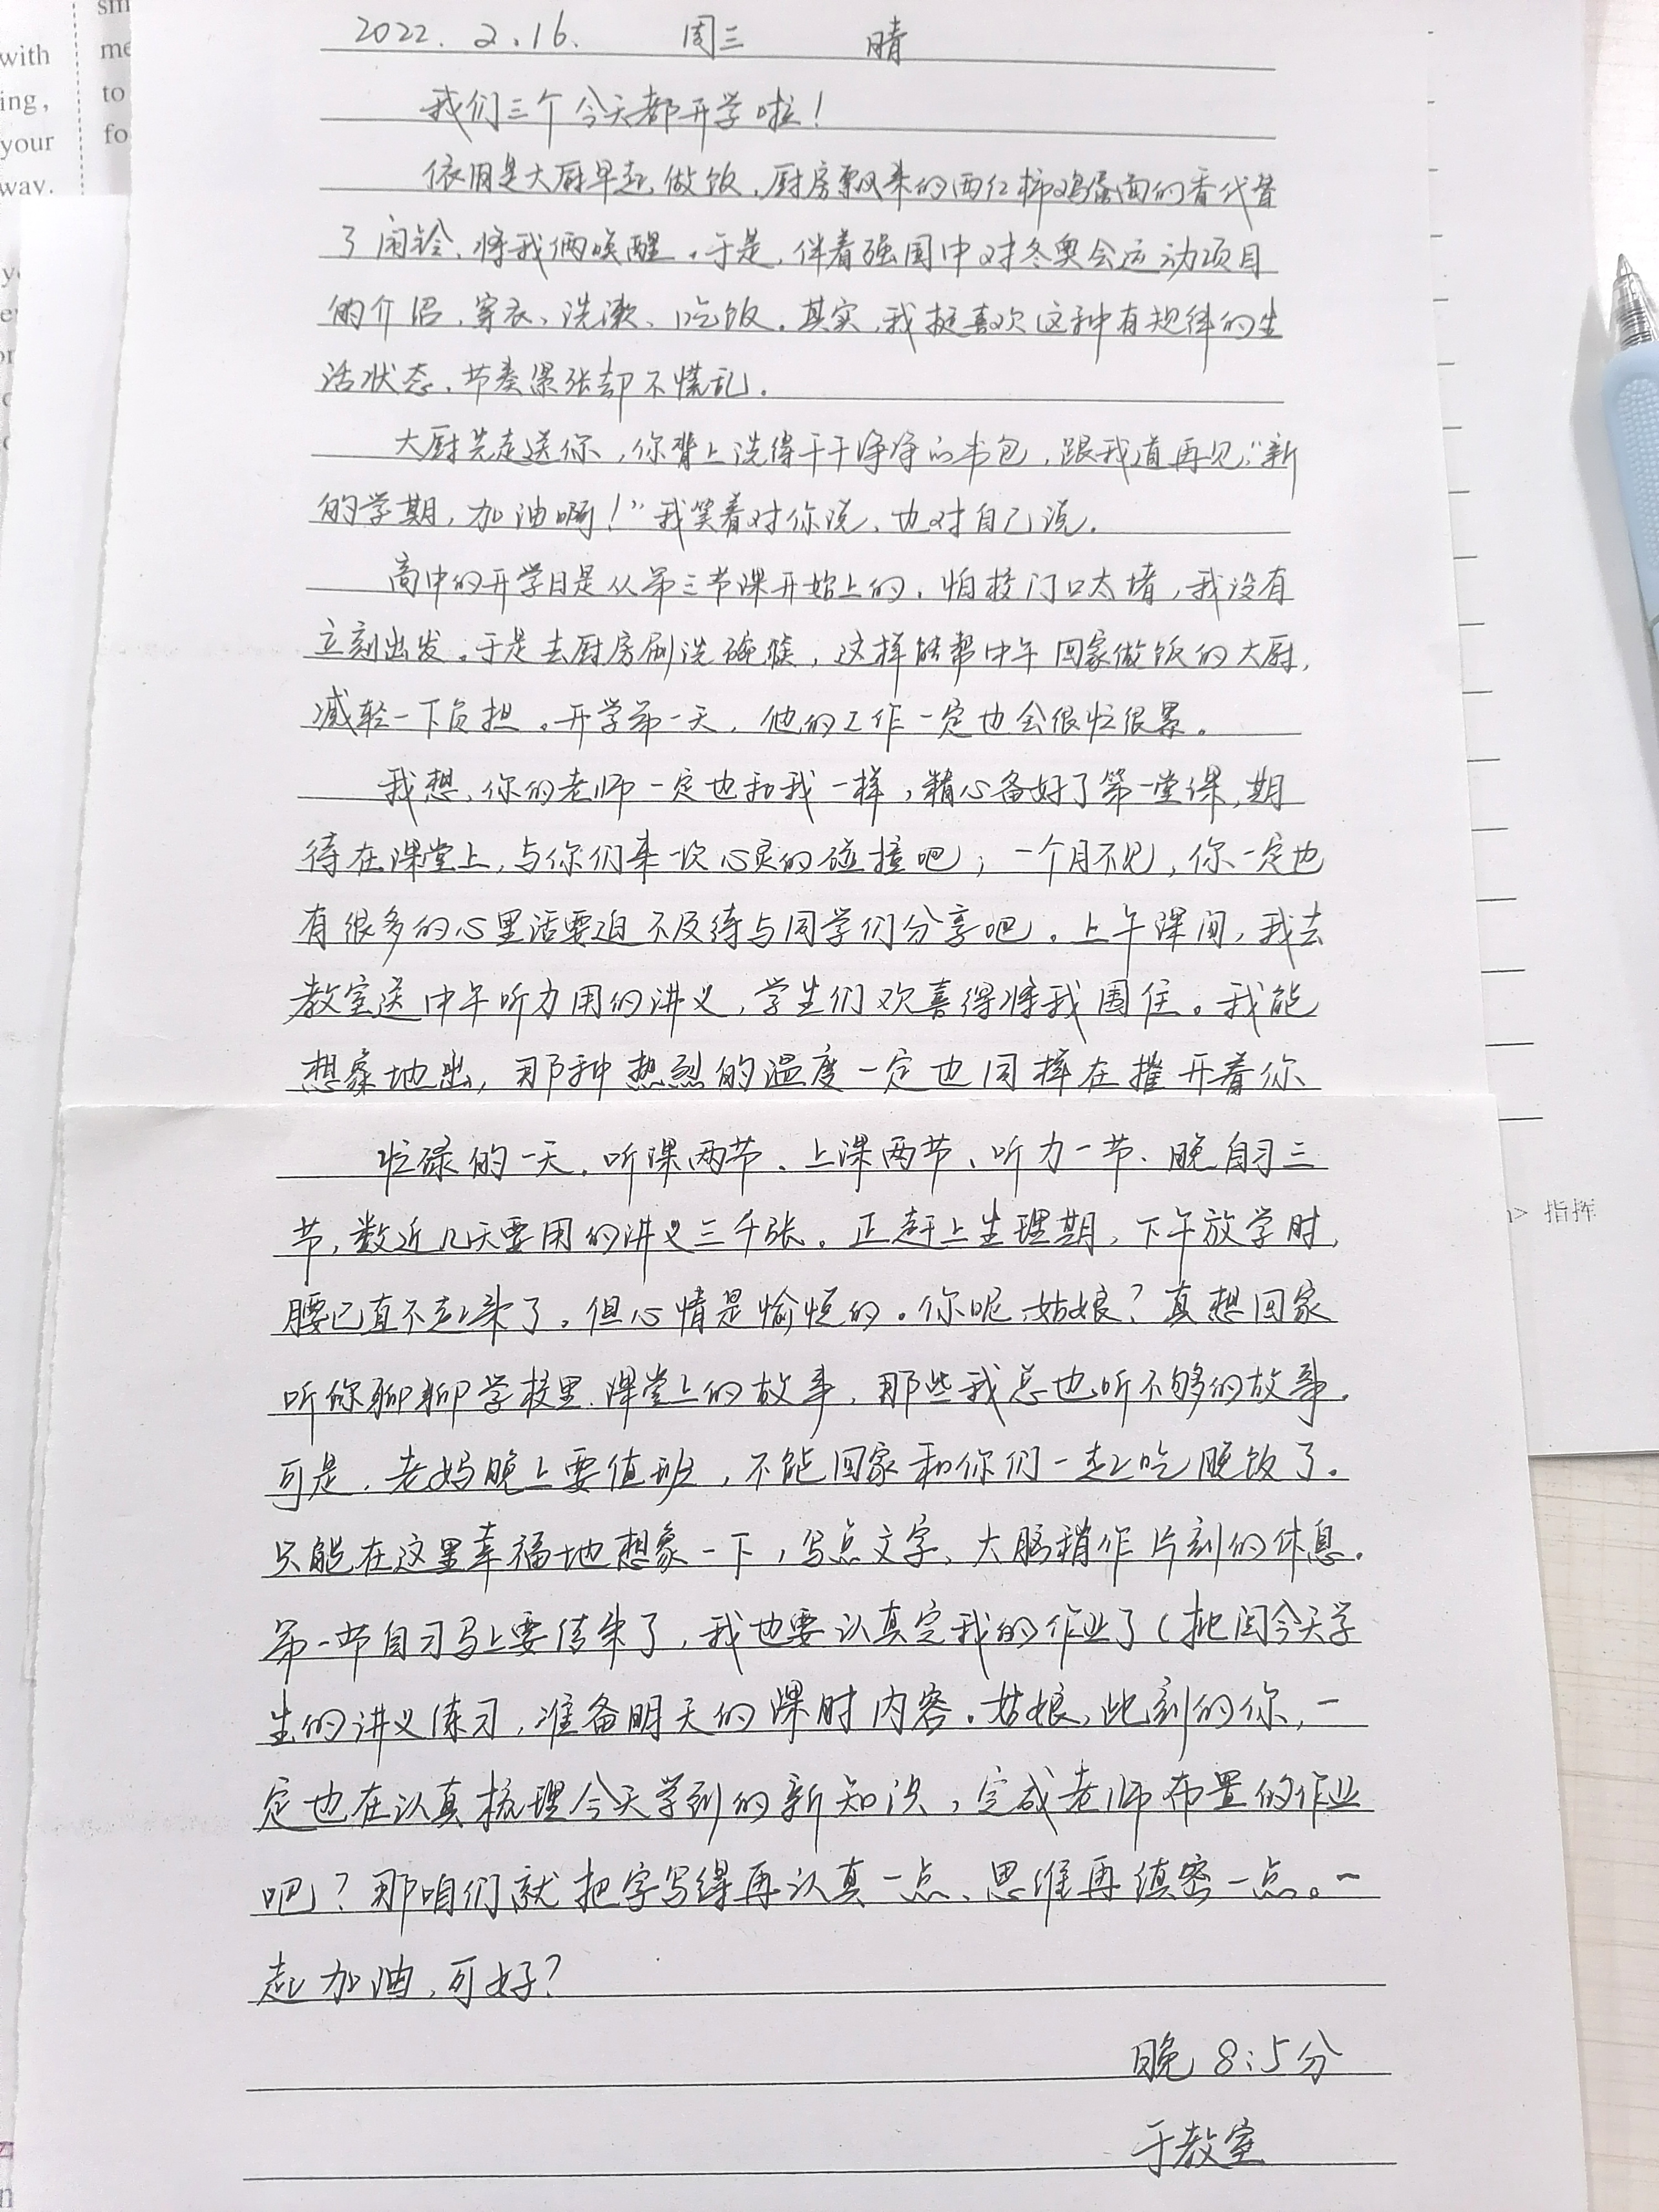 2022.2.16. 周三 晴
我们三个今天都开学啦！
依旧是大厨早起做饭，厨房飘来的西红柿鸡蛋面的香代替
了闹铃，将我俩唤醒。于是，伴着强国中对冬奥会运动项目
的介绍，穿衣、洗漱、吃饭。其实，我挺喜欢这种有规律的生
活状态，节奏紧张却不慌乱。
大厨先走送你，你背上洗得干干净净的书包，跟我道再见，“新
的学期，加油啊！”我笑着对你说，也对自己说。
高中的开学日是从第三节课开始上的，怕校门口太堵，我没有
立刻出发。于是去厨房刷洗碗筷，这样能帮中午回家做饭的大厨，
减轻一下负担。开学第一天，他的工作一定也会很忙很累。
我想，你的老师一定也和我一样，精心备好了第一堂课，期
待在课堂上，与你们来一次心灵的碰撞吧；一个月不见，你一定也
有很多的心里话要迫不及待与同学们分享吧。上午课间，我去
教室送中午听力用的讲义，学生们欢喜得将我围住。我能
想象地出，那种热烈的温度一定也同样在摧开着你
忙碌的一天。听课两节、上课两节、听力一节、晚自习三
节，数近几天要用的讲义三千张。正赶上生理期，下午放学时，
腰已直不起来了。但心情是愉悦的。你呢，姑娘？真想回家
听你聊聊学校里、课堂上的故事，那些我总也听不够的故事。
可是，老妈晚上要值班，不能回家和你们一起吃晚饭了。
只能在这里幸福地想象一下，写点文字，大脑稍作片刻的休息。
第一节自习马上要结束了，我也要认真完我的作业了（批阅今天学
生的讲义练习，准备明天的课时内容。姑娘，此刻的你，一
定也在认真梳理今天学到的新知识，完成老师布置的作业
吧？那咱们就把字写得再认真一点、思维再缜密一点。一
起加油，可好？
晚8:5分
于教室
with
ing,
your
way.
sm
me
to
fo
指挥